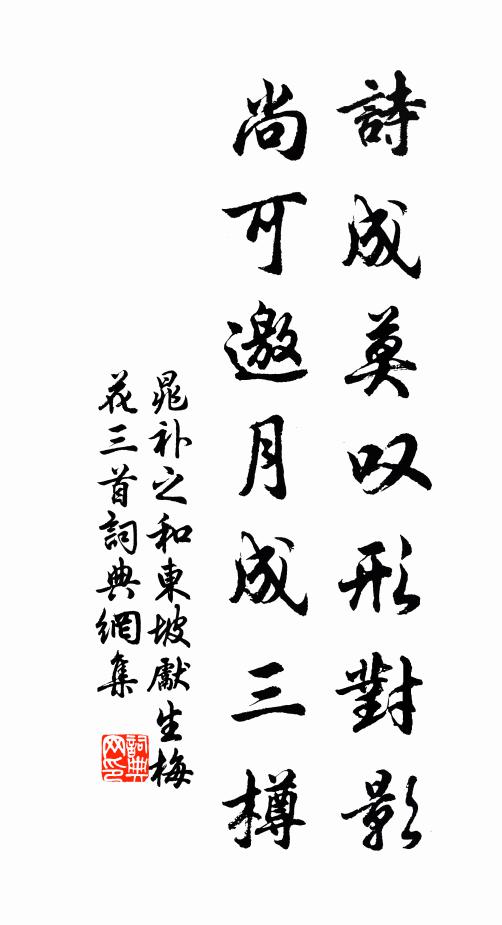 詩成莫叹形對影
尚可邀月成三樽
晁补之和東坡獻生梅
花三首詞典網集
詞典
网印